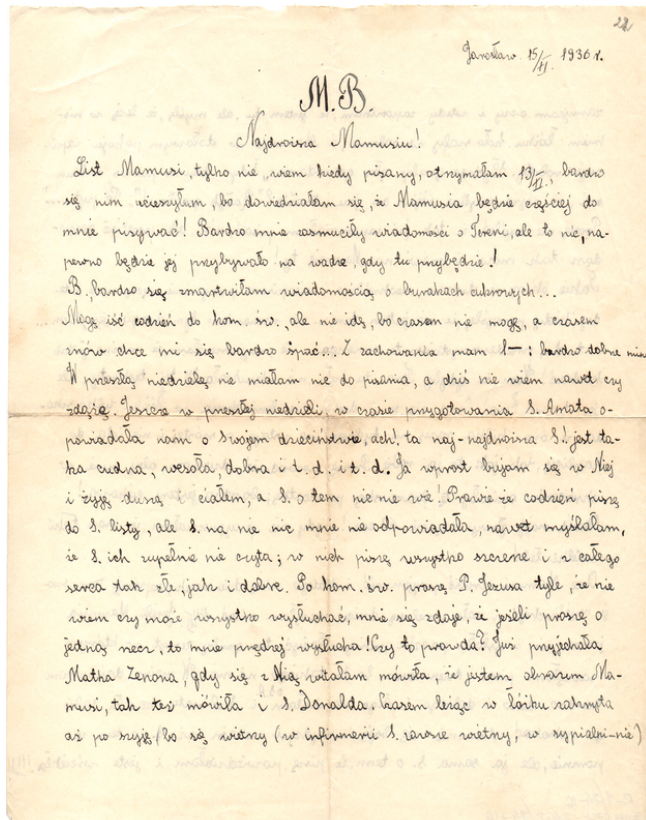 22
Jarosław 15/XI. 1936 r.
M. B.
Najdroższa Mamusiu!
List Mamusi, tylko nie wiem kiedy pisany, otrzymałam 13/XI., bardzo
się nim ucieszyłam, bo dowiedziałam się, że Mamusia będzie częściej do
mnie pisywać! Bardzo mnie zasmuciły wiadomości o Tereni, ale to nic, na-
pewno będzie jej przybywało na wadze, gdy tu przybędzie!
B., bardzo się zmartwiłam wiadomością o burakach cukrowych...
Mogę iść codzień do kom. św., ale nie idę, bo czasem nie mogę, a czasem
znów chce mi się bardzo spać... Z zachowania mam 1—: bardzo dobne
W przeszłą niedzielę nie miałam nic do pisania, a dziś nie wiem nawet czy
zdążę. Jeszcze w przeszłej niedzieli, w czasie przygotowania S. Amata o-
powiadała nam o swojem dzieciństwie, ach! ta naj-najdroższa S.! jest ta-
ka cudna, wesoła, dobra i t. d. i t. d. Ja wprost bujam się w Niej
i żyję duszą i ciałem, a S. o tem nic nie wie! Prawie że codzień piszę
do S. listy, ale S. na nie nic mnie nie odpowiadała, nawet myślałam,
że S. ich zupełnie nie czyta; w nich piszę wszystko szczerze i z całego
serca tak złe, jak i dobre. Po kom. św. proszę P. Jezusa tyle, że nie
wiem czy może wszystko wysłuchać, mnie się zdaje, że jeżeli proszę o
jedną rzecz, to mnie prędzej wysłucha! Czy to prawda? Już przyjechała
Matka Zenona, gdy się z Nią witałam mówiła, że jestem obrazem Ma-
musi, tak też mówiła i S. Donalda. Czasem leżąc w łóżku zakryta
aż po szyję (bo są wietrzy (w infirmerii S. zawsze wietrzy, w sypialni-nie)